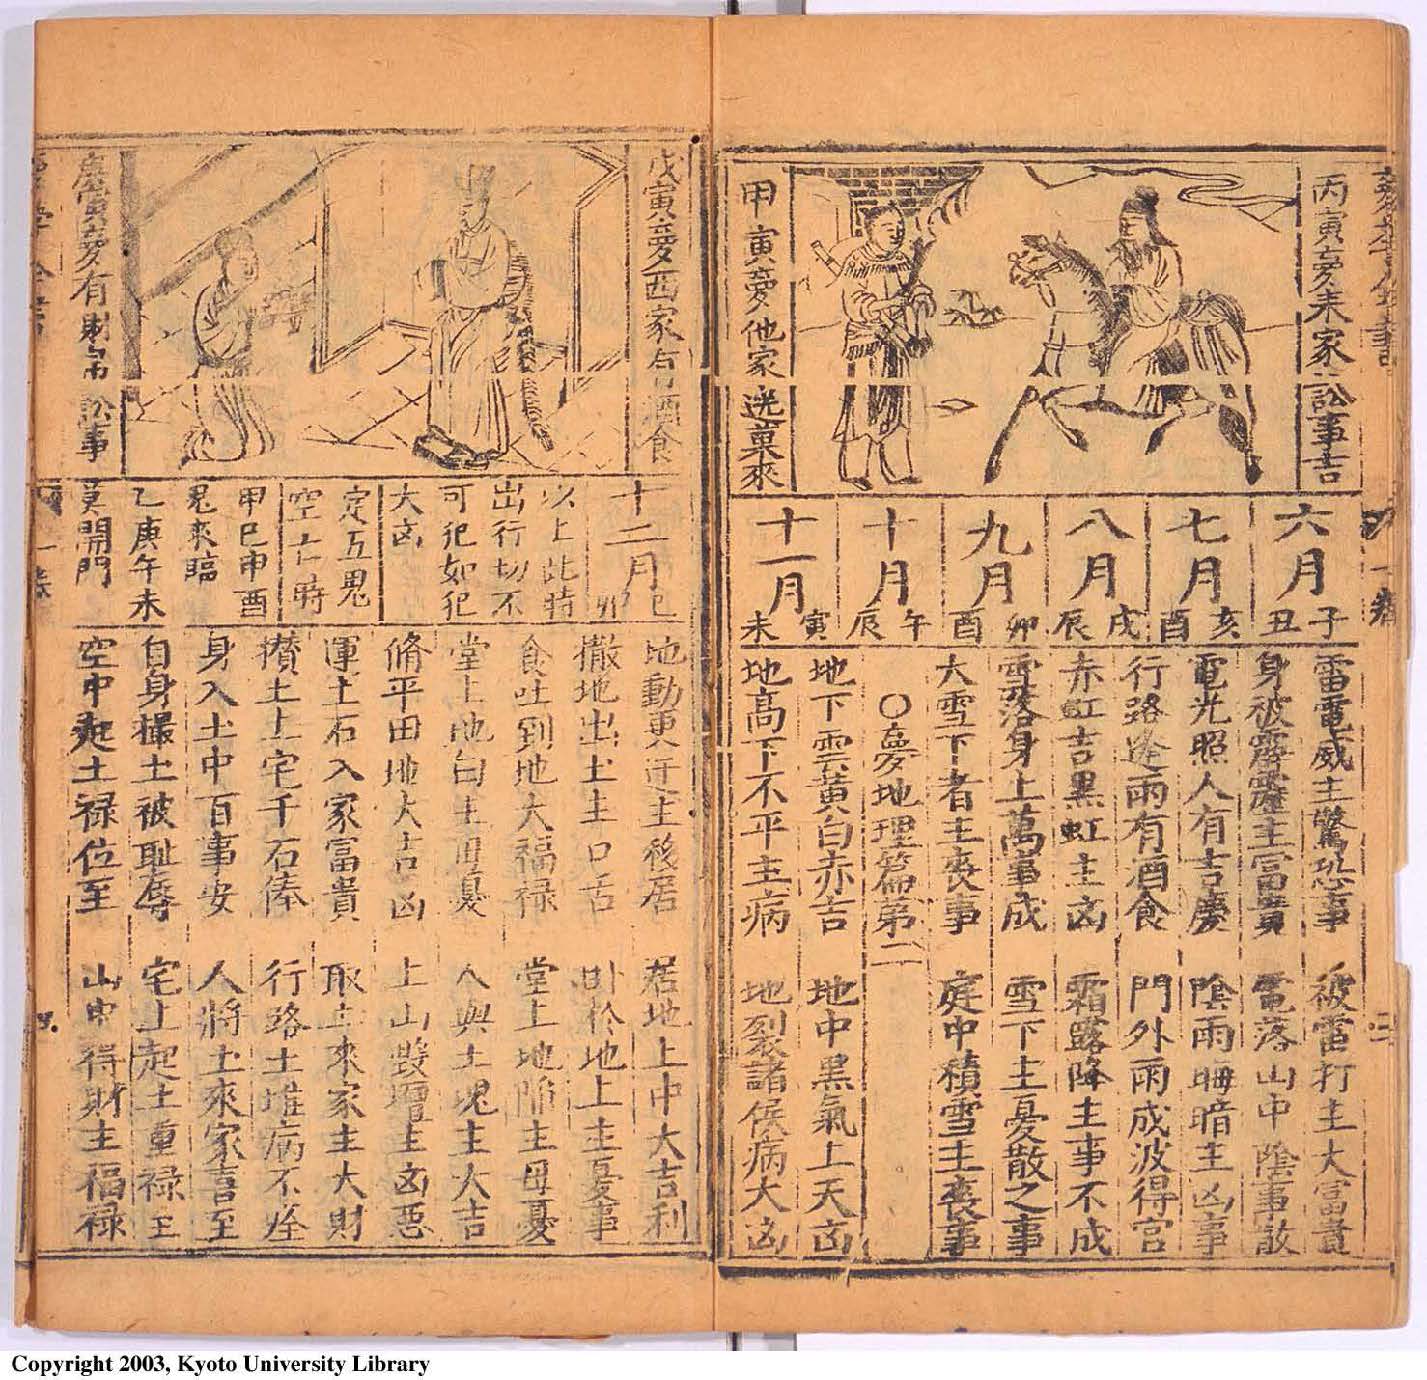 丙寅夢來家主訟事吉
甲寅夢他家送菓來
六月
子
丑
七月
亥
酉
八月
戌
辰
九月
卯
酉
十月
午
辰
十一月
寅
未
雷電威主驚恐事
被雷打主大富貴
身被霹靂主富貴
電落山中陰事散
電光照人有吉慶
陰雨晦暗主凶事
行路逢雨有酒食
門外雨成波得官
赤虹吉黑虹主凶
霜露降主事不成
雪落身上萬事成
雪下主憂散之事
大雪下者主喪事
庭中積雪主喪事
○夢地理篇第二
地下雲黃白赤吉
地中黑氣上天凶
地高下不平主病
地裂諸侯病大凶
戊寅夢西家有酒食
庚寅夢有財帛訟事
十二月
巳
卯
以上此時
出行切不
可犯如犯
大凶
定五鬼
空亡時
甲巳申酉
鬼來臨
乙庚午未
莫開門
地動更迁主移居
居地上中大吉利
撒地出土主口舌
卧於地上主憂事
食吐到地大福禄
堂上地陷主母憂
堂上地白主田憂
人與土塊主大吉
脩平田地大吉凶
上山毀壇主凶惡
運土石入家富貴
取土來家主大財
攢土上宅千石俸
行路土堆病不痊
身入土中百事安
人將土來家喜至
自身撮土被耻辱
宅上起土重禄至
空中起土禄位至
山中得財主福禄
Copyright 2003, Kyoto University Library